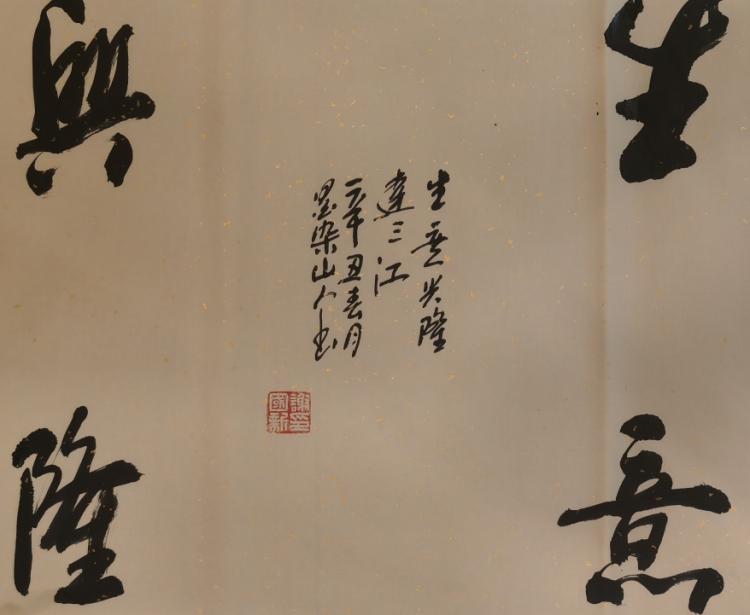 生意
興隆
生意兴隆
達三江
辛丑春月
墨染山人书
謝印
國新